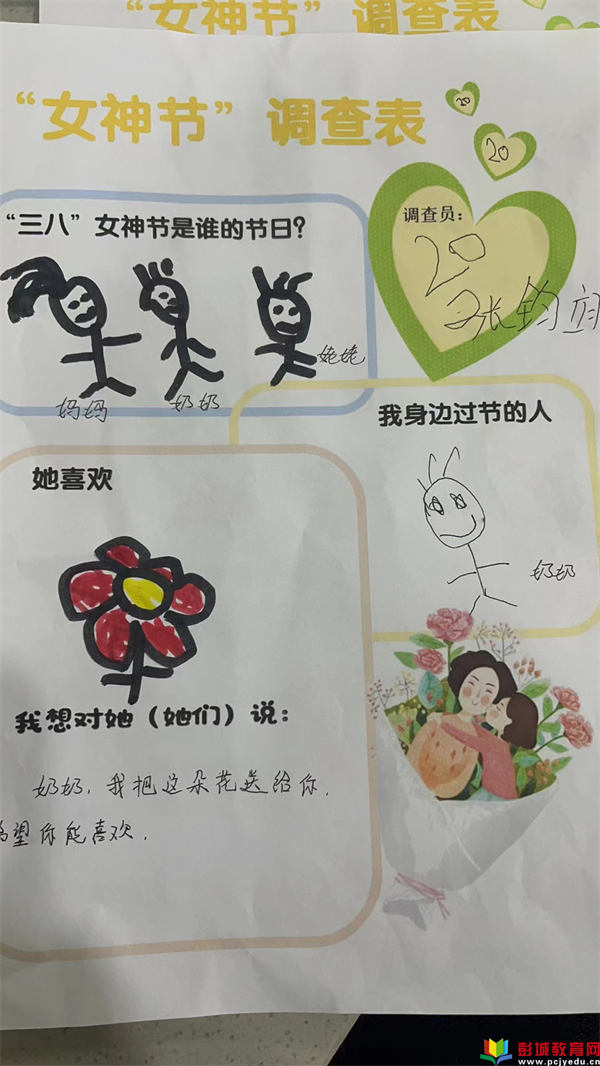 “女神节”调查表
“女神节”调查表
20
20
调查员：
20
张钧
“三八”女神节是谁的节日？
妈妈
奶奶
姥姥
我身边过节的人
奶奶
她喜欢
我想对她（她们）说：
奶奶，我把这朵花送给你，
希望你能喜欢．
彭城教育网
www.pcjyedu.cn